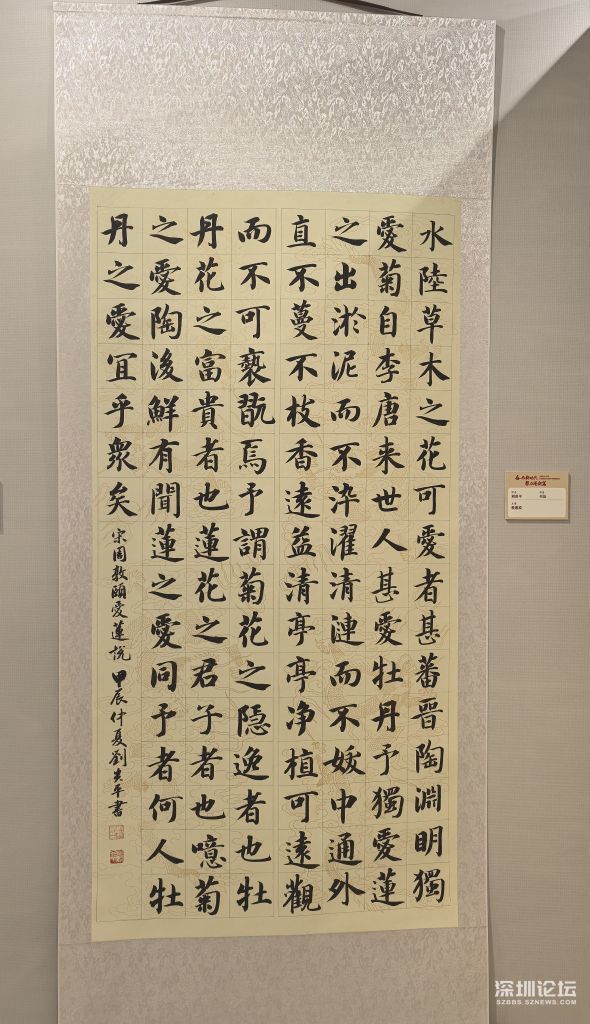 水陸草木之花可愛者甚蕃晉陶淵明獨
愛菊自李唐来世人甚愛牡丹予獨愛蓮
之出淤泥而不染濯清漣而不妖中通外
直不蔓不枝香遠益清亭亭净植可遠觀
而不可褻翫焉予謂菊花之隠逸者也牡
丹花之富貴者也蓮花之君子者也噫菊
之愛陶後鮮有聞蓮之愛同予者何人牡
丹之愛冝乎衆矣 宋周敦頤愛蓮說 甲辰仲夏劉平書
深圳论坛
SZBBS.SZNEWS.COM